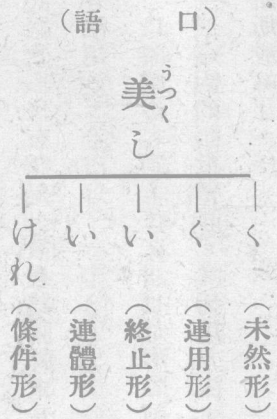 (口語)
美し
うつく
―く(未然形)
―く(連用形)
―い(終止形)
―い(連體形)
―けれ(條件形)